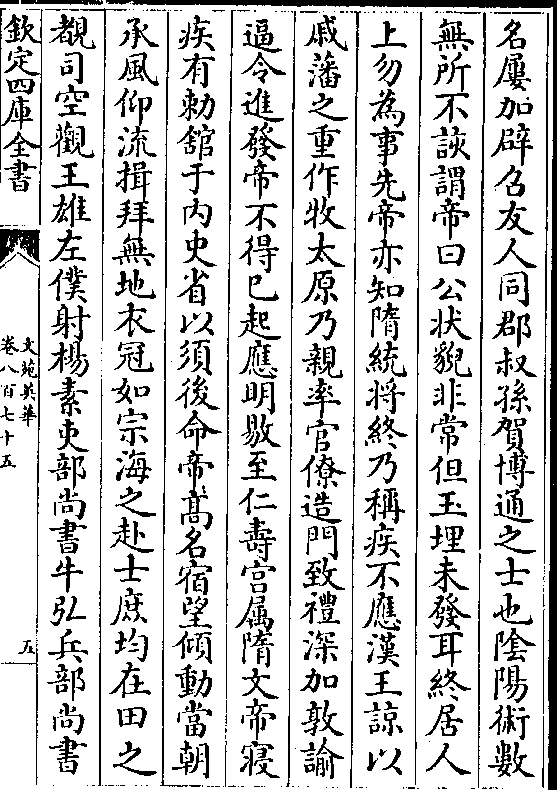 名屢加辟召友人同郡叔孫賀博通之士也陰陽術數
無所不該謂帝曰公状貌非常但玉埋未發耳終居人
上勿為事先帝亦知隋統将終乃稱疾不應漢王諒以
戚藩之重作牧太原乃親率官僚造門致禮深加敦諭
逼令進發帝不得已起應明敭至仁壽宫属隋文帝寝
疾有勅舘于内史省以須後命帝髙名宿望傾動當朝
承風仰流揖拜無地衣冠如宗海之赴士庶均在田之
覩司空觀王雄左僕射楊素吏部尚書牛弘兵部尚書
欽定四庫全書
文苑英華
卷八百七十五
五